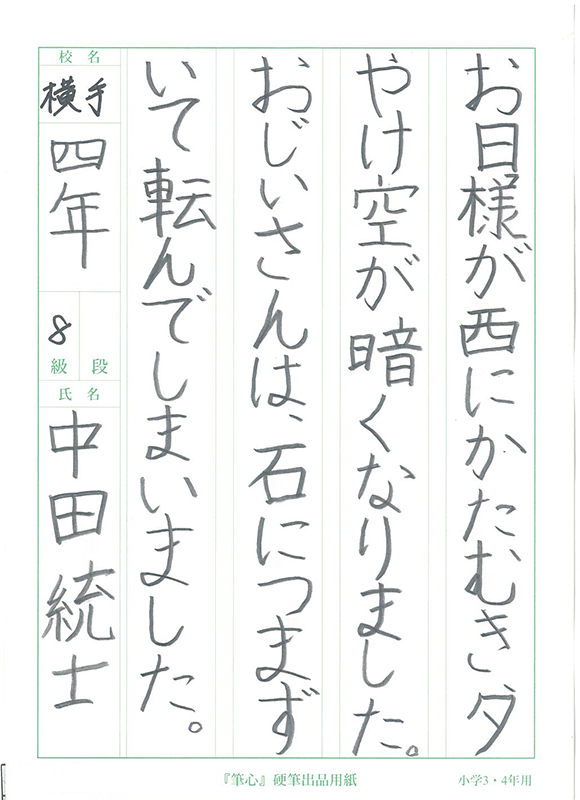 お日様が西にかたむき、夕
やけ空が暗くなりました。
おじいさんは、石につまず
いて転んでしまいました。
校名
横手
四年
8
級 段
氏名
中田統士
『筆心』硬筆出品用紙
小学3・4年用